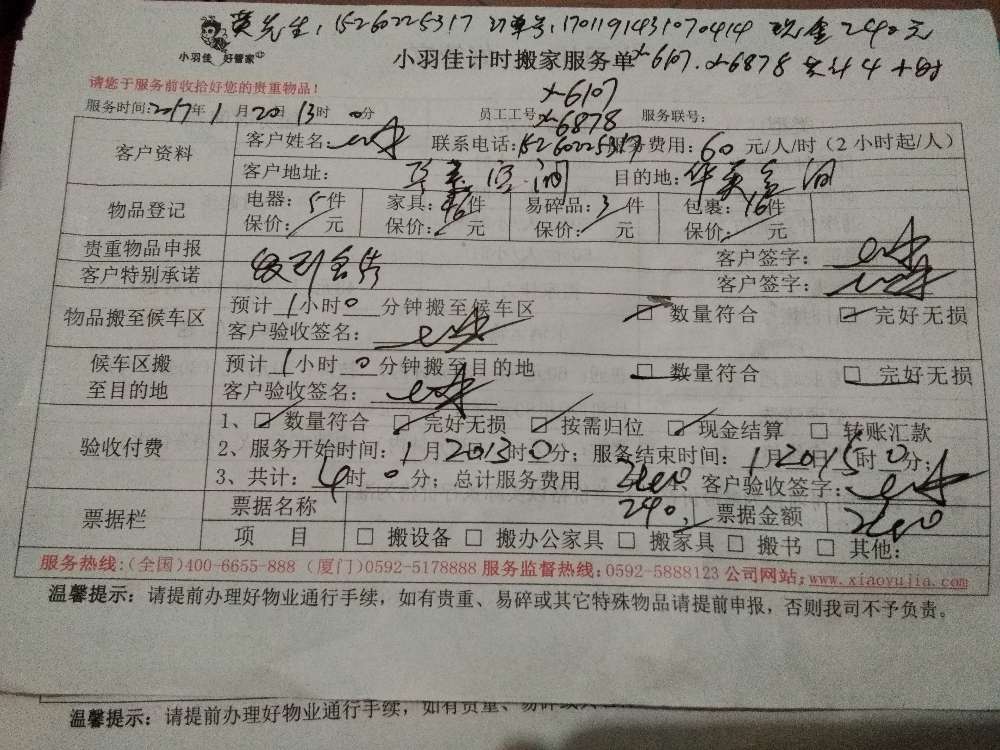 黄先生, 15260225317 订单号, 1701191431070414 现金240元
小羽佳 好管家
小羽佳计时搬家服务单 x-6107. x-6878 共计4小时
请您于服务前收拾好您的贵重物品!
x-6107
服务时间: 2017年1月20日13时0分 员工工号 x-6878 服务联号:
客户资料 客户姓名: 联系电话: 15260225317 服务费用: 60元/人/时(2小时起/人)
客户地址: 目的地:
物品登记 电器: 5件 家具: 6件 易碎品: 3件 包裹: 16件
保价: 元 保价: 元 保价: 元 保价: 元
贵重物品申报 客户签字:
客户特别承诺 客户签字:
物品搬至候车区 预计1小时0分钟搬至候车区 ☑数量符合 ☑完好无损
客户验收签名:
候车区搬至目的地 预计1小时0分钟搬至目的地 ☑数量符合 ☑完好无损
客户验收签名:
验收付费 1、☑数量符合 ☑完好无损 ☑按需归位 ☑现金结算 □转账汇款
2、服务开始时间: 1月20日13时0分; 服务结束时间: 1月20日15时0分;
3、共计: 4时0分; 总计服务费用240 客户验收签字:
票据栏 票据名称 240, 票据金额 240
项 目 □搬设备 □搬办公家具 □搬家具 □搬书 □其他:
服务热线:(全国)400-6655-888 (厦门)0592-5178888 服务监督热线:0592-5888123 公司网站:www.xiaoyujia.com
温馨提示: 请提前办理好物业通行手续,如有贵重、易碎或其它特殊物品请提前申报,否则我司不予负责。
温馨提示: 请提前办理好物业通行手续,如有贵重、易碎或